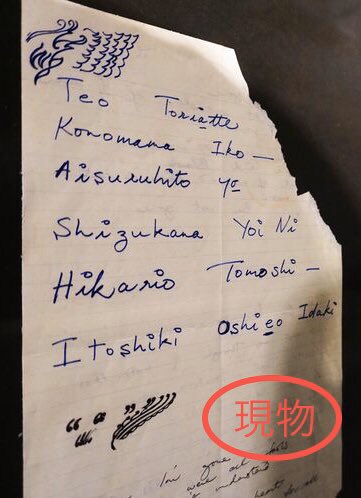 Teo Toriatte
Konomama Iko —
Aisuruhito yo
Shizukana Yoi Ni
Hikario Tomoshi —
Itoshiki Oshieo Idaki
現物